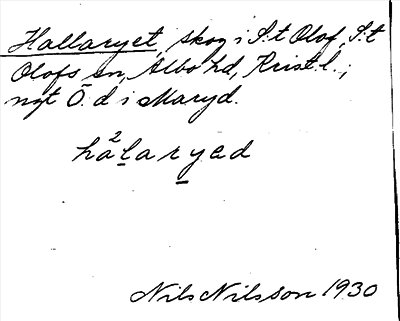 Hallaryet, skog i S:t Olof, S:t
Olofs sn, Albo hd, Krist. l.;
ngt Ö. d i Maryd.
ha²laryed
Nils Nilsson 1930